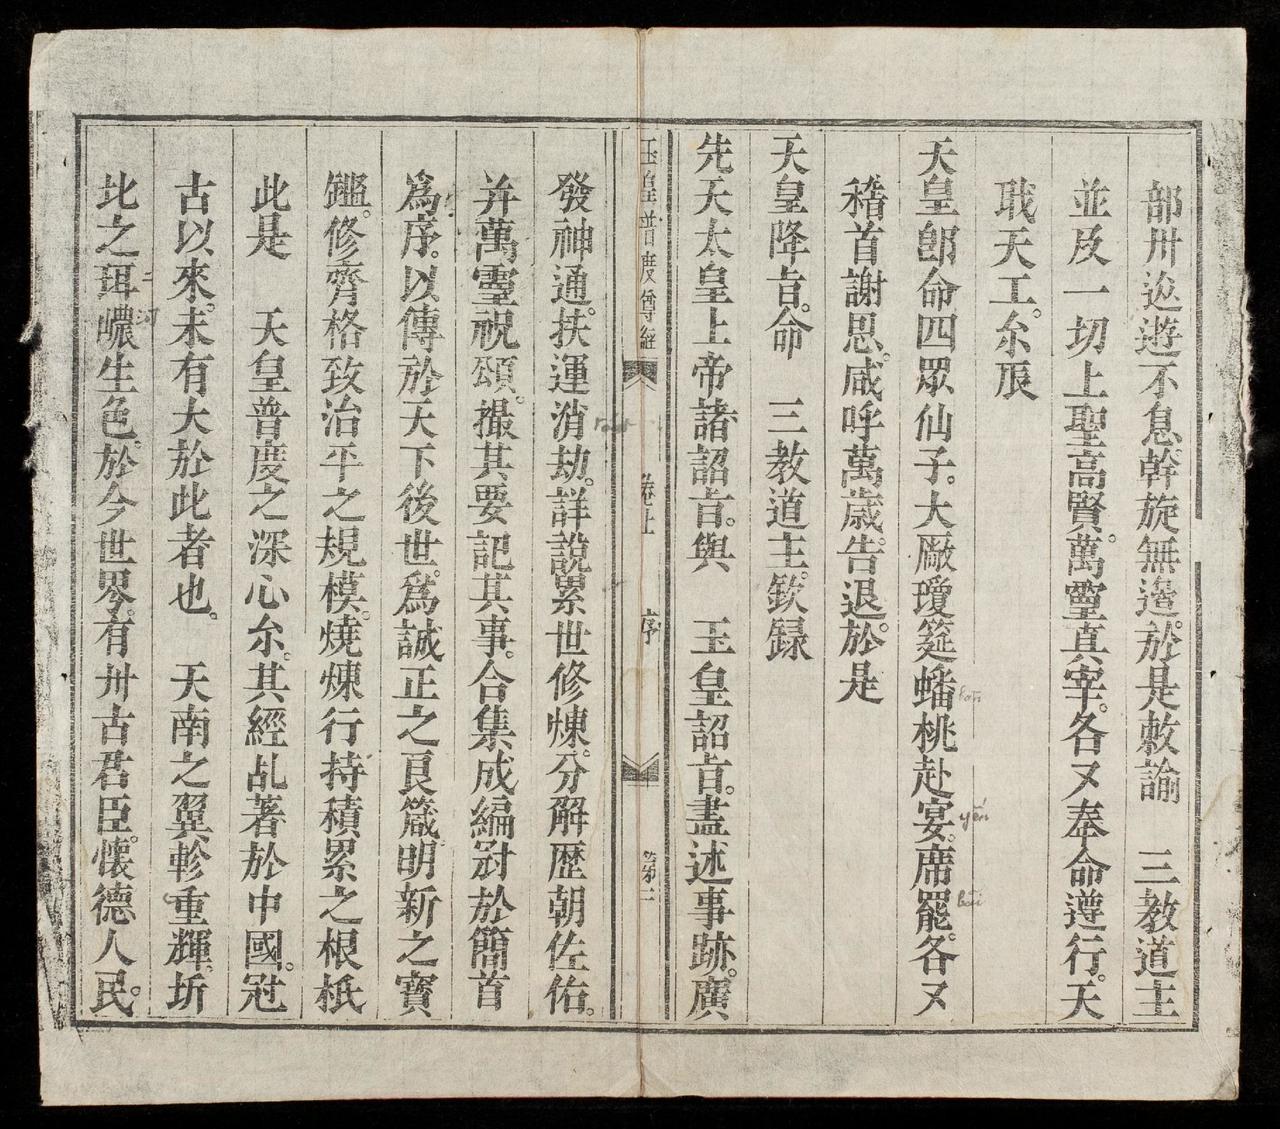 部卅迯遊不息幹旋無邉於是敕諭　三教道主
並及一切上聖高賢。萬靈真宰。各又奉命遵行。天
戢天工。尒辰
天皇卽命四眾仙子。大厰瓊筵蟠桃赴宴。席罷各又
稽首謝恩。咸呼萬歲。告退。於是
天皇降旨。命　三教道主。欽録
先天太皇上帝諸詔旨。與　玉皇詔旨。盡述事跡。廣
玉皇普度尊經　卷上　序
發神通。扶運消劫。詳說累世修煉。分解歷朝佐佑。
并萬靈祝頌。撮其要記其事。合集成編。尉於簡首
為序。以傳於天下後世。為誠正之良箴。明新之寶
鑑。修齊格致治平之規模。燒煉行持積累之根柢
此是　天皇普度之深心尒。其經乩著於中國。冠
古以來。未有大於此者也。　天南之翼軫重輝。圻
北之珥濃生色。於今世界。有卅古君臣。懷德人民。
yến